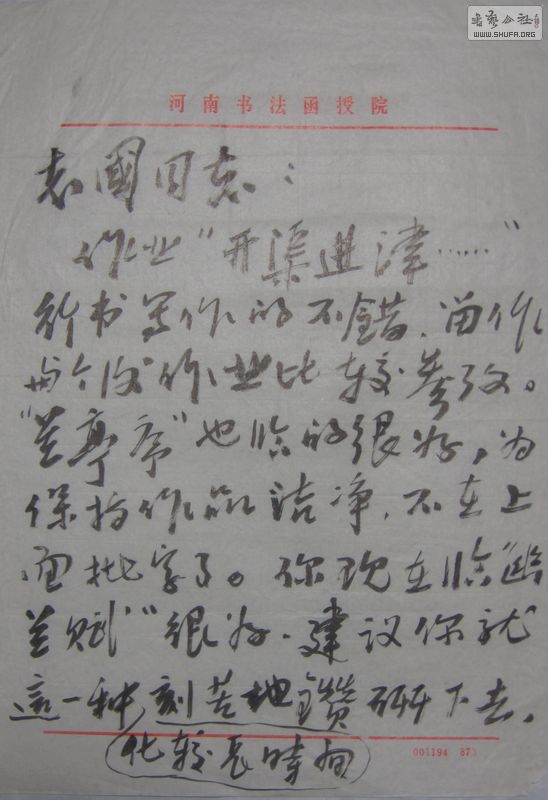 書法公社
WWW.SHUFA.ORG
河南书法函授院
志國同志：
作业“开渠进津……”
行书写作的不错，留作
与今后作业比较参改。
“兰亭序”也临的很好，为
保持作品洁净，不在上
面批字了。你现在临“幽
兰赋”很好，建议你就
這一种刻苦地鑽研下去，
化较长時间
001194 873